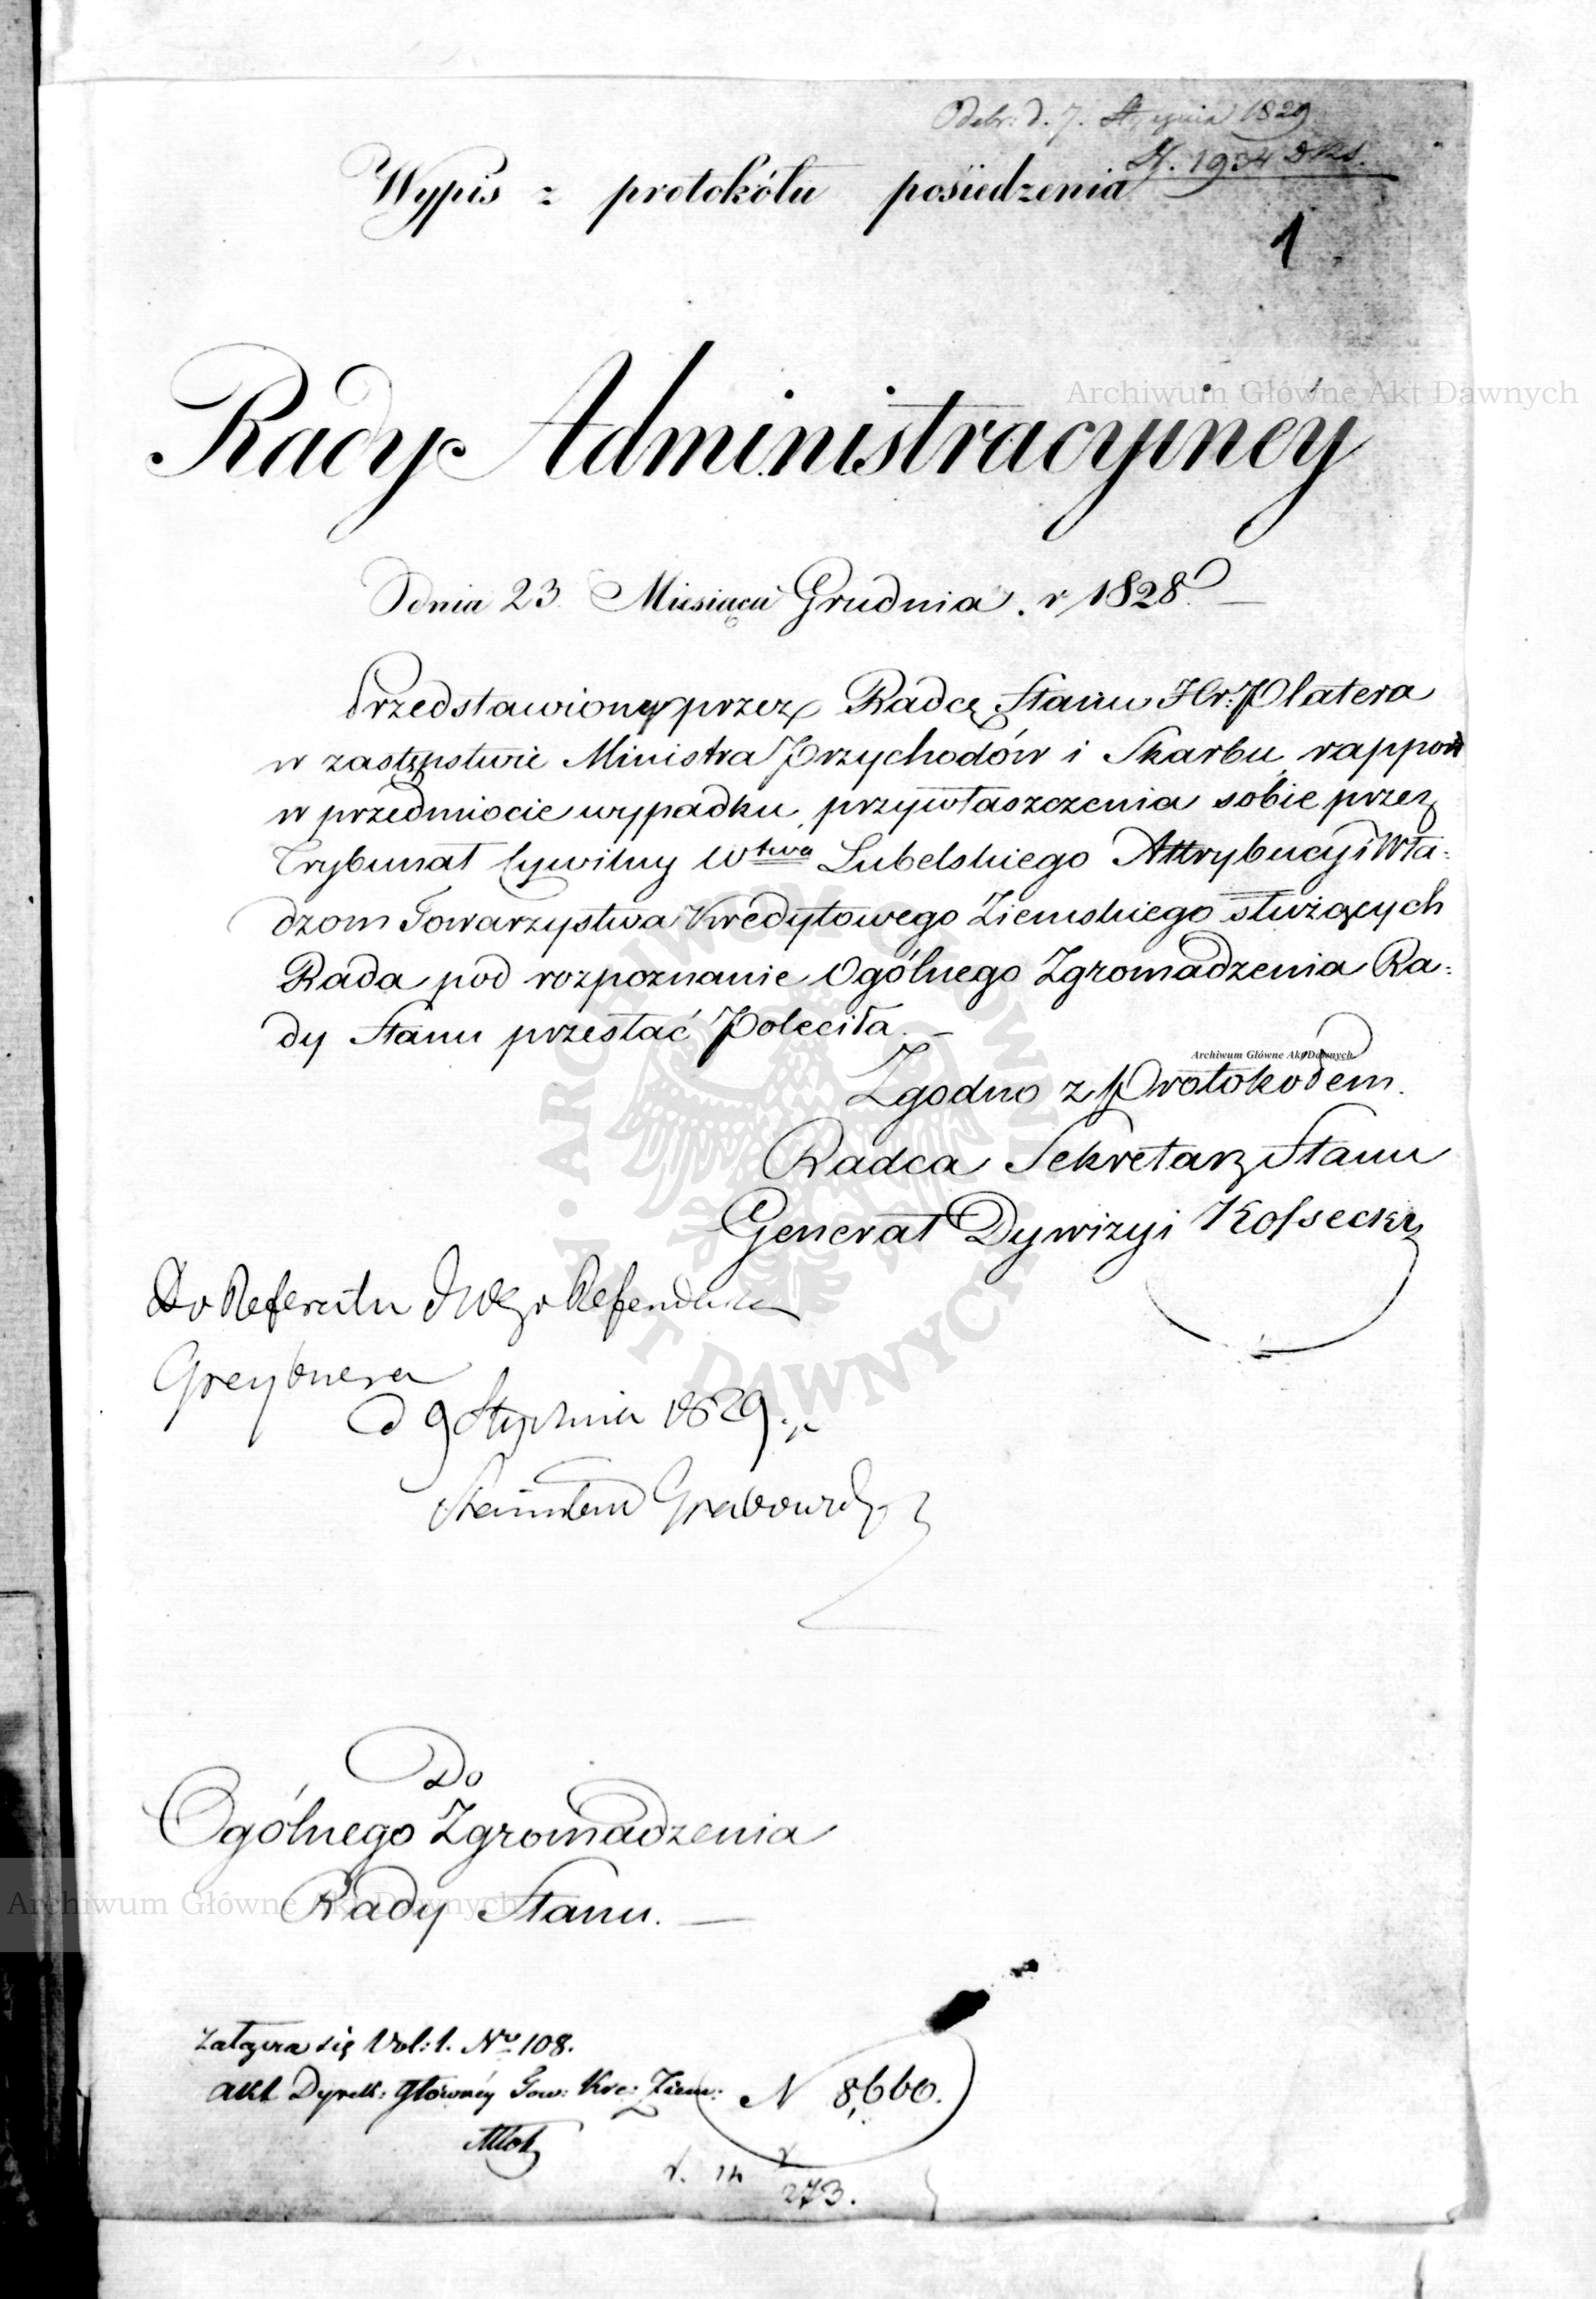 Odebr: d. 7. Stycznia 1829
N. 1934 DKS.
Wypis z protokółu posiedzenia
1
Rady Administracyiney
Archiwum Główne Akt Dawnych
Odnia 23 Miesiąca Grudnia. r 1828.
Przedstawiony przez Radcę Stanu Hr: Platera
w zastępstwie Ministra Przychodów i Skarbu, rapport
w przedmiocie wypadku, przywłaszczenia sobie przez
Trybunał Cywilny Wtwa Lubelskiego Attrybucyi Wła:
dzom Towarzystwa Kredytowego Ziemskiego służących
Rada pod rozpoznanie Ogólnego Zgromadzenia Ra:
dy Stanu przesłać Poleciła. —
Archiwum Główne Akt Dawnych
Zgodno z Protokołem.
Radca Sekretarz Stanu
Generał Dywizyi Kossecki
Do Referatu JWgo Referendarza
Greybnera
d 9 Stycznia 1829. r
Stanisław Grabowski
Do
Ogólnego Zgromadzenia
Rady Stanu. —
Archiwum Główne Akt Dawnych
Załącza się Vol: 1. No 108.
akt Dyrek: Główney Tow: Kre: Ziem:
N 8,660.
r. 14
273.
ARCHIWUM GŁÓWNE AKT DAWNYCH